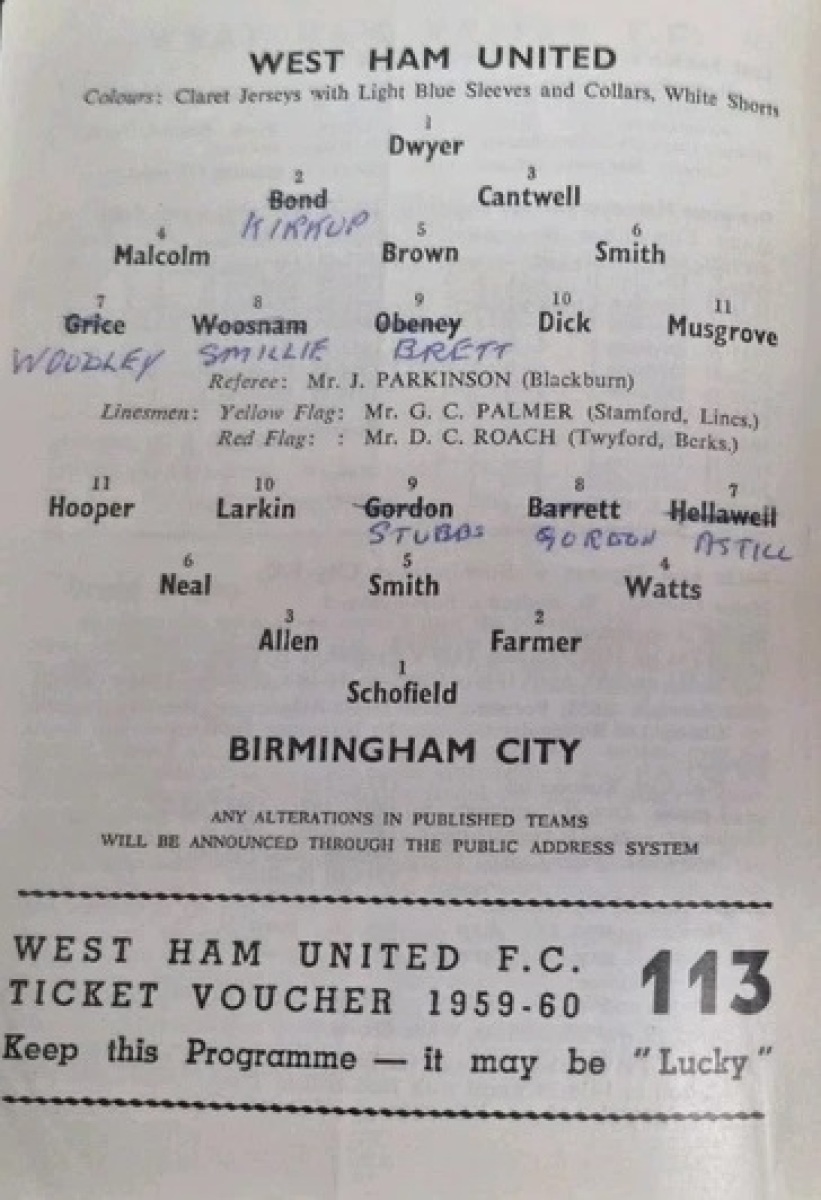 WEST HAM UNITED
Colours: Claret Jerseys with Light Blue Sleeves and Collars, White Shorts
1
Dwyer
2 3
Bond Cantwell
KIRKUP
4 5 6
Malcolm Brown Smith
7 8 9 10 11
Grice Woosnam Obeney Dick Musgrove
WOODLEY SMILLIE BRETT
Referee: Mr. J. PARKINSON (Blackburn)
Linesmen: Yellow Flag: Mr. G. C. PALMER (Stamford, Lincs.)
Red Flag: : Mr. D. C. ROACH (Twyford, Berks.)
11 10 9 8 7
Hooper Larkin Gordon Barrett Hellawell
STUBBS GORDON ASTILL
6 5 4
Neal Smith Watts
3 2
Allen Farmer
1
Schofield
BIRMINGHAM CITY
ANY ALTERATIONS IN PUBLISHED TEAMS
WILL BE ANNOUNCED THROUGH THE PUBLIC ADDRESS SYSTEM
WEST HAM UNITED F.C. 113
TICKET VOUCHER 1959-60
Keep this Programme — it may be "Lucky"